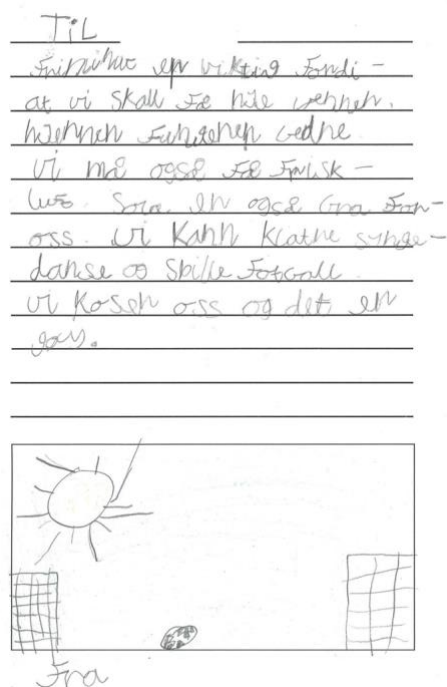 TiL
Friminut er viktig Fordi -
at vi skall Få hile jernen.
hjernen Fungerer bedre.
vi må også Få Frisk -
luft. Sola er også bra For -
oss. vi kann klatre synge -
danse og spille Fotball.
vi koser oss og det er
gøy.
Fra